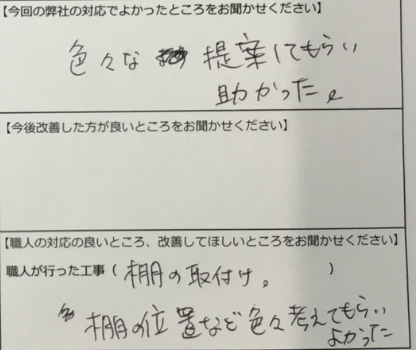 【今回の弊社の対応でよかったところをお聞かせください】
色々な 提案してもらい
助かった。
【今後改善した方が良いところをお聞かせください】
【職人の対応の良いところ、改善してほしいところをお聞かせください】
職人が行った工事（ 棚の取付け。 ）
棚の位置など色々考えてもらい
よかった